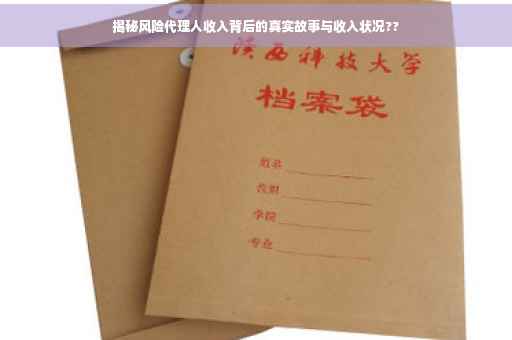 揭秘风险代理人收入背后的真实故事与收入状况??
陕西科技大学
档案袋
姓名
学院
专业